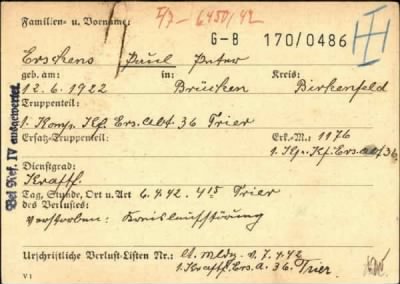 I/7- 6450/42
Familien- u. Vorname:
G-B 170/0486
Erschens Paul Peter
geb. am: in: Kreis:
12.6.1922 Brücken Birkenfeld
Truppenteil:
1. Komp. Kf. Ers. Abt. 36 Trier
Ersatz-Truppenteil: Erk.-M.: 1176
1. Kp. Kf. Ers. Abt. 36
Dienstgrad:
Kraftf.
Tag, Stunde, Ort u. Art 6.4.42 4 15 Trier
des Verlustes:
verstorben: Kreislaufstörung
Urschriftliche Verlust-Listen Nr.: lt. Mldg. v. 7.4.42
1. Kraftf. Ers. A. 36. Trier.
V 1
Bei Ref. IV ausgewertet